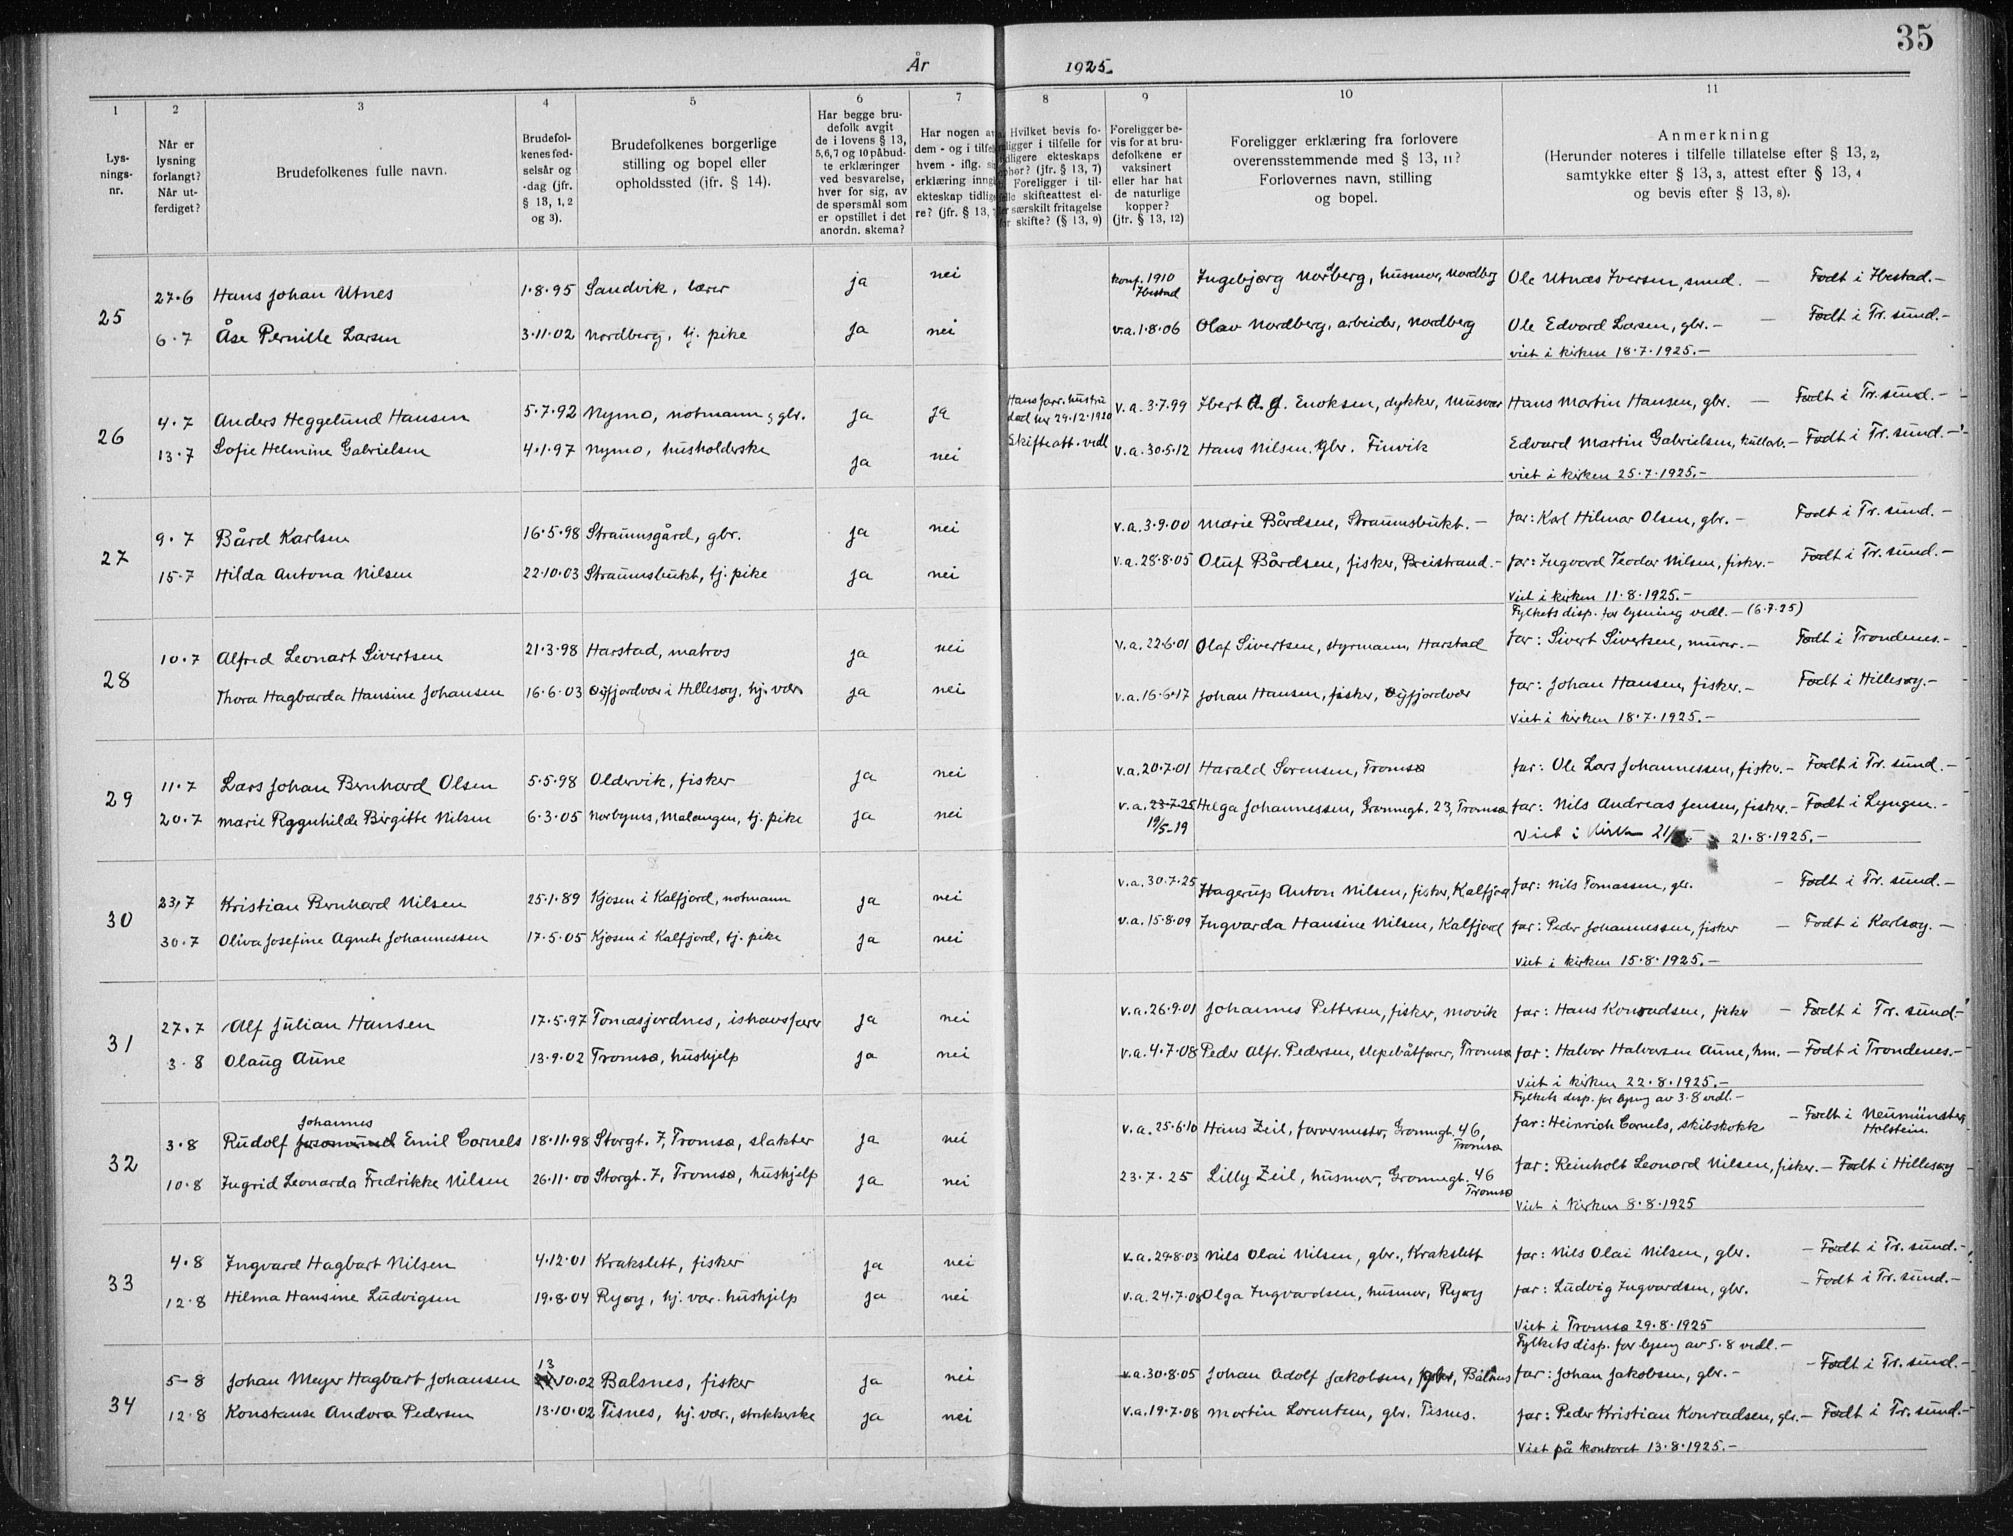 35
År 1925.
1 2 3 4 5 6 7 8 9 10 11
Lysnings-nr.
Når er lysning forlangt? Når utferdiget?
Brudefolkenes fulle navn.
Brudefolkenes fødselsår og -dag (jfr. § 13, 1, 2 og 3).
Brudefolkenes borgerlige stilling og bopel eller opholdssted (jfr. § 14).
Har begge brudefolk avgit de i lovens § 13, 5,6,7 og 10 påbudte erklæringer ved besvarelse, hver for sig, av de spørsmål som er opstillet i det anordn. skema?
Har nogen av dem - og i tilfelle hvem - iflg.
erklæring inng
ekteskap tidligere? (jfr. § 13,
Hvilket bevis foreligger i tilfelle for tidligere ekteskaps ophør? (jfr. § 13, 7) Foreligger i tilfelle skifteattest eller særskilt fritagelse for skifte? (§ 13, 9)
Foreligger bevis for at brudefolkene er vaksinert eller har hat de naturlige kopper? (jfr. § 13, 12)
Foreligger erklæring fra forlovere overensstemmende med § 13, 11? Forlovernes navn, stilling og bopel.
Anmerkning (Herunder noteres i tilfelle tillatelse efter § 13, 2, samtykke efter § 13, 3, attest efter § 13, 4 og bevis efter § 13, 8).
25
27.6 Hans Johan Utnes 1.8.95 Sandvik, lærer ja nei konf. 1910 Ibestad Ingebjørg Nordberg, husmor, Nordberg Ole Utnæs Iversen, smed. — Født i Ibestad.—
6.7 Åse Pernille Larsen 3.11.02 Nordberg, tj. pike ja nei v.a. 1.8.06 Olav Nordberg, arbeider, Nordberg Ole Edvard Larsen, gbr.— — Født i Tr. sund.—
viet i kirken 18.7.1925.—
26
4.7 Anders Heggelund Hansen 5.7.92 Nymo, notmann, gbr. ja ja Hans forr. hustru død her 29.12.1920 v.a. 3.7.99 Ibert A. J. Enoksen, dykker, Musvær Hans Martin Hansen, gbr. — Født i Tr. sund.—
13.7 Sofie Helmine Gabrielsen 4.1.97 Nymo, husholderske ja nei Skifteatt. vedl v.a. 30.5.12 Hans Nilsen, gbr. Finvik Edvard Martin Gabrielsen, — Født i Tr. sund.—
viet i kirken 25.7.1925.—
27
9.7 Bård Karlsen 16.5.98 Straumsgård, gbr. ja nei v.a. 3.9.00 Marie Bårdsen, Straumsbukt.— far: Karl Hilmar Olsen, gbr.— Født i Tr. sund.—
15.7 Hilda Antona Nilsen 22.10.03 Straumsbukt, tj. pike ja nei v.a. 28.8.05 Oluf Bårdsen, fisker, Breistrand.— far: Ingvard Teodor Nilsen, fisker.— Født i Tr. sund.—
Viet i kirken 11.8.1925.—
28
Fylkets disp. for lysning vedl.— (6.7.25)
10.7 Alfred Leonart Sivertsen 21.3.98 Harstad, matros ja nei v.a. 22.6.01 Olaf Sivertsen, styrmann, Harstad far: Sivert Sivertsen, murer.— Født i Trondenes.—
Thora Hagbarda Hansine Johansen 16.6.03 Øyfjordvær i Hillesøy, hj. vær. ja nei v.a. 16.6.17 Johan Hansen, fisker, Øyfjordvær far: Johan Hansen, fisker.— Født i Hillesøy.—
Viet i kirken 18.7.1925.—
29
11.7 Lars Johan Bernhard Olsen 5.5.98 Oldervik, fisker ja nei v.a. 20.7.01 Harald Sørensen, Tromsø far: Ole Lars Johannessen, fisker.— Født i Tr. sund.—
20.7 Marie Ragnhilde Birgitte Nilsen 6.3.05 Norbynes, Malangen, tj. pike ja nei v.a. 23.7.25 19/5-19 Helga Johannessen, Grønnegt. 23, Tromsø far: Nils Andreas Jensen, fisker.— Født i Lyngen.—
Viet i Kirken 21/8.— 21.8.1925.—
30
23.7 Kristian Bernhard Nilsen 25.1.89 Kjosen i Kalfjord, notmann ja nei v.a. 30.7.25 Hagerup Anton Nilsen, fisker, Kalfjord far: Nils Tomassen, gbr. — Født i Tr. sund.—
30.7 Oliva Josefine Agnete Johannessen 17.5.05 Kjosen i Kalfjord, tj. pike ja nei v.a. 15.8.09 Ingvarda Hansine Nilsen, Kalfjord far: Peder Johannessen, fisker — Født i Karlsøy.—
Viet i kirken 15.8.1925.—
31
27.7 Alf Julian Hansen 17.5.97 Tomasjordnes, ishavsfarer ja nei v.a. 26.9.01 Johannes Pettersen, fisker, Movik far: Hans Konradsen, fisker — Født i Tr. sund.—
3.8 Olaug Aune 13.9.02 Tromsø, hushjelp ja nei v.a. 4.7.08 Peder Alfr. Pedersen, slepebåtfører, Tromsø far: Halvor Halvorsen Aune, hm.— Født i Trondenes.—
Viet i kirken 22.8.1925.—
32
Fylkets disp. for lysng av 3.8 vedl.—
3.8 Rudolf Johannes Emil Cornels 18.11.98 Storgt. 7, Tromsø, slakter ja nei v.a. 25.6.10 Hans Zeil, farvermester, Grønnegt. 46, Tromsø far: Heinrich Cornels, skibskokk — Født i Neumünster, Holstein.
10.8 Ingrid Leonarda Fredrikke Nilsen 26.11.00 Storgt. 7, Tromsø, hushjelp ja nei 23.7.25 Lilly Zeil, husmor, Grønnegt. 46 Tromsø far: Reinholt Leonard Nilsen, fisker.— Født i Hillesøy
Viet i kirken 8.8.1925
33
4.8 Ingvard Hagbart Nilsen 4.12.01 Krakslett, fisker ja nei v.a. 29.8.03 Nils Olai Nilsen, gbr., Krakslett far: Nils Olai Nilsen, gbr. — Født i Tr. sund.—
12.8 Hilma Hansine Ludvigsen 19.8.04 Ryøy, hj. vær. hushjelp ja nei v.a. 24.7.08 Olga Ingvardsen, husmor, Ryøy far: Ludvig Ingvardsen, gbr. — Født i Tr. sund.—
Viet i Tromsø 29.8.1925
34
Fylkets disp. for lysng av 5.8 vedl.—
5-8 Johan Meyer Hagbart Johansen 13.10.02 Balsnes, fisker ja nei v.a. 30.8.05 Johan Adolf Jakobsen, gbr., Balsnes far: Johan Jakobsen, gbr.— — Født i Tr. sund.—
12.8 Konstanse Andora Pedersen 13.10.02 Tisnes, hj. vær., strikkerske ja nei v.a. 19.7.08 Martin Lorentsen, gbr. Tisnes. far: Peder Kristian Konradsen, gbr.— Født i Tr. sund.—
Viet på kontoret 13.8.1925.—